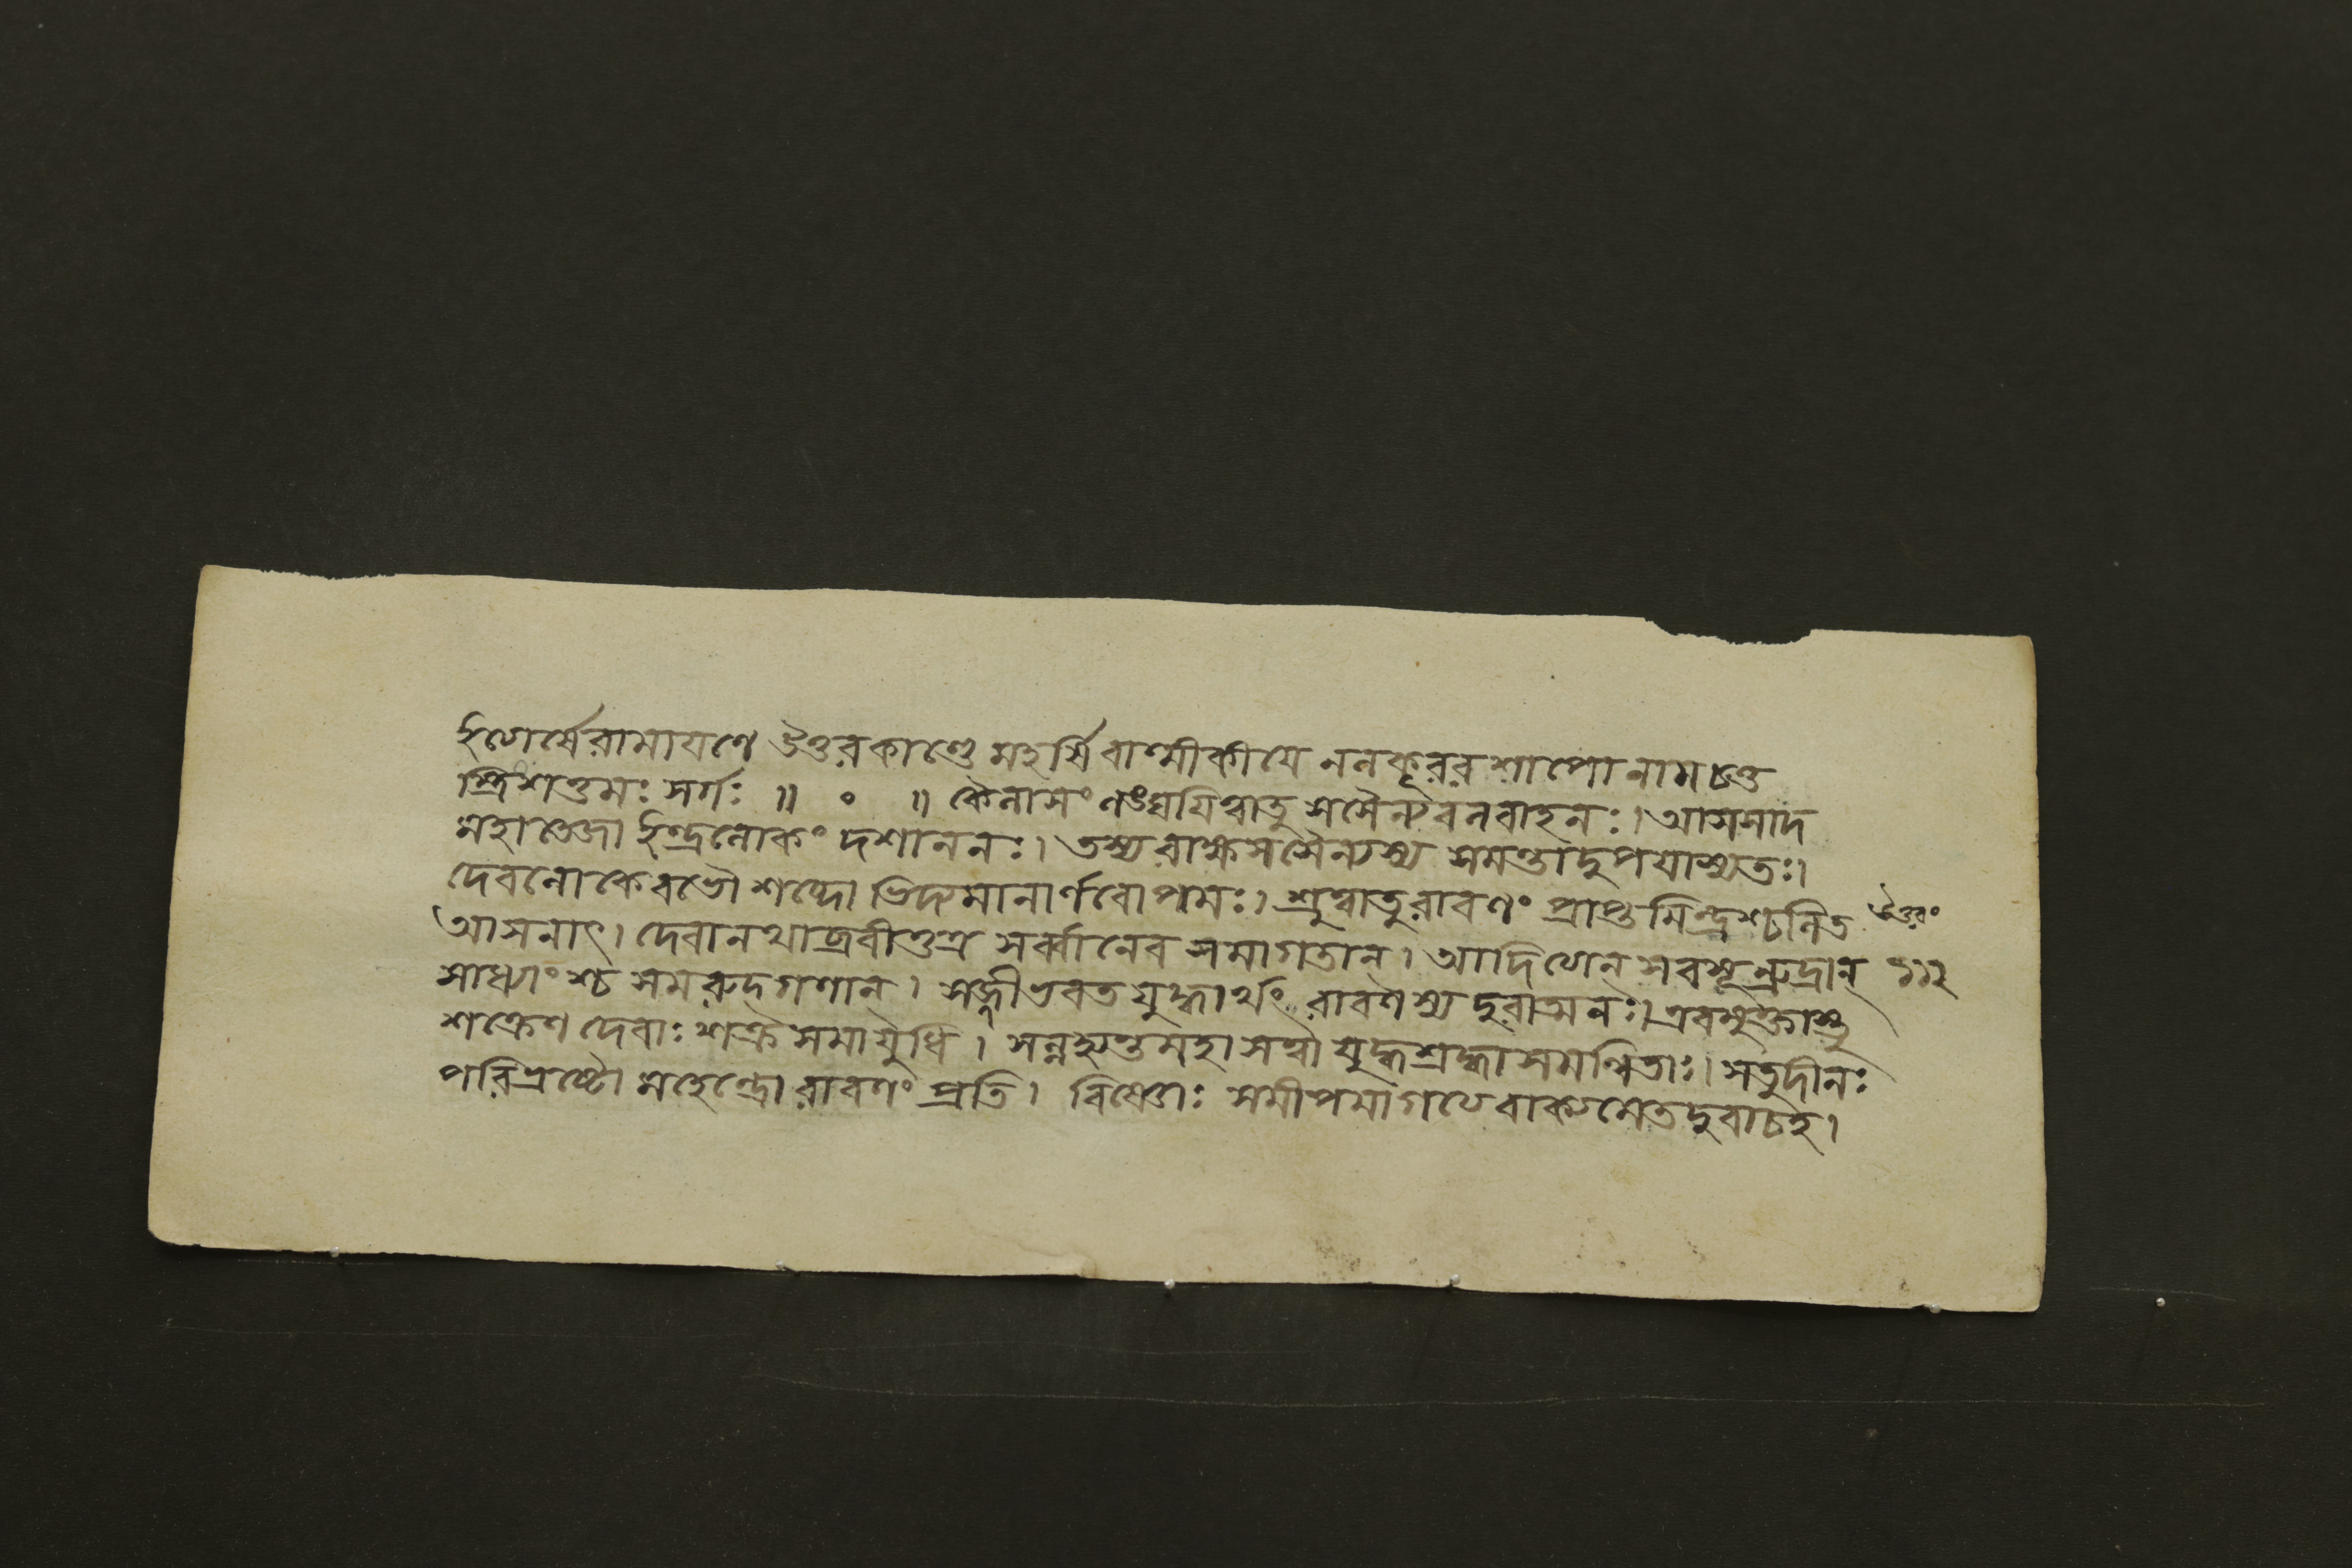 ইত্যের্ষেরামাযণে উত্তরকাণ্ডে মহর্ষিবাল্মীকীযে নলকূবরশাপোনামচতু
স্ত্রিংশত্তমঃ সর্গঃ ॥ ॰ ॥ কৈলাসং লঙ্ঘযিত্বাতু সসৈন্যবলবাহনঃ। আসসাদ
মহাতেজা ইন্দ্রলোকং দশাননঃ। তস্যরাক্ষসসৈন্যস্য সমন্তাদুপযাস্যতঃ।
দেবলোকেবভৌ শব্দো ভিদ্যমানার্ণবোপমঃ। শ্রুত্বাতুরাবণং প্রাপ্তমিন্দ্রশ্চলিত
আসনাৎ। দেবানথাব্রবীত্তত্র সর্ব্বানেব সমাগতান্। আদিত্যেন্ সবসূন্রুদ্রান্
সাধ্যাংশ্চ সমরুদ্গণান্। সজ্জীভবত যুদ্ধার্থং রাবণস্য দুরাত্মনঃ। এবমুক্তাস্তু
শক্রেণ দেবাঃ শক্রসমাযুধি। সন্নহ্যন্তমহাসত্বা যুদ্ধশ্রদ্ধাসমন্বিতাঃ। সতুদীনঃ
পরিত্রস্তো মহেন্দ্রো রাবণং প্রতি। বিষ্ণোঃ সমীপমাগত্য বাক্যমেতদুবাচহ।
উত্তরং
১১২